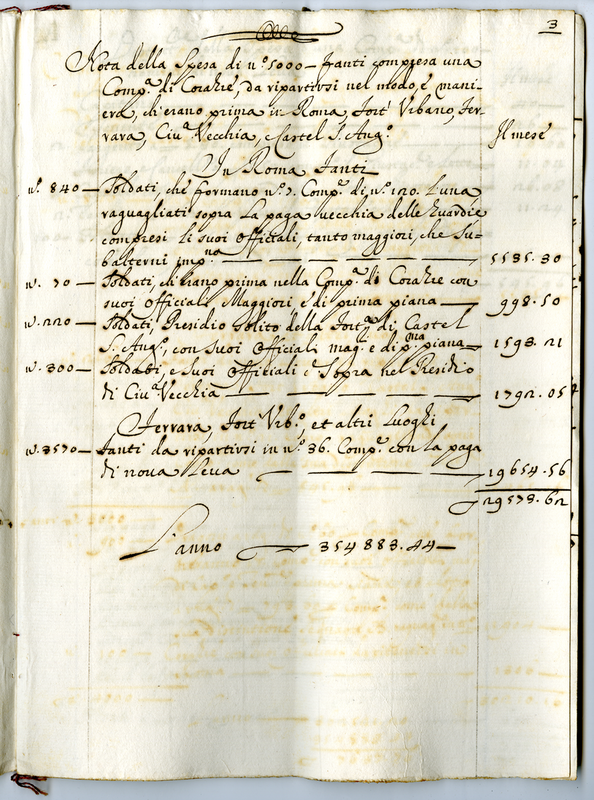 3
Nota della Spesa di n.º 5000 — fanti compresa una
Comp.ª di Corazze, da ripartirsi nel modo, e mani-
era, ch'erano prima in Roma, Fort' Urbano, Fer-
rara, Ciu.ª Vecchia, e Castel S. Ang.º Il mese
In Roma Fanti
n.º 840 — Soldati, che formano n.º 7. Comp.ª di n.º 120. l'una
raguagliati sopra la paga vecchia delle Guardie
compresi li suoi Officiali, tanto maggiori, che Su-
balterni 5535.30
n.º 70 — Soldati, ch'erano prima nella Comp.ª di Corazze con
suoi Officiali Maggiori e di prima piana — 998.50
n.º 220 — Soldati, Presidio solito della Fort.ª di Castel
S. Ang.º, con suoi Officiali mag.ri e di p.ma piana — 1593.21
n.º 300 — Soldati, e suoi Officiali c.ª Sopra nel Presidio
di Ciu.ª Vecchia — 1792.05
Ferrara, Fort' Urb.º, et altri Luoghi
n.º 3570 — Fanti da ripartirsi in n.º 36. Comp.ª con la paga
di nova Leua — 19654.56
29573.62
L'anno — 354883.44 —